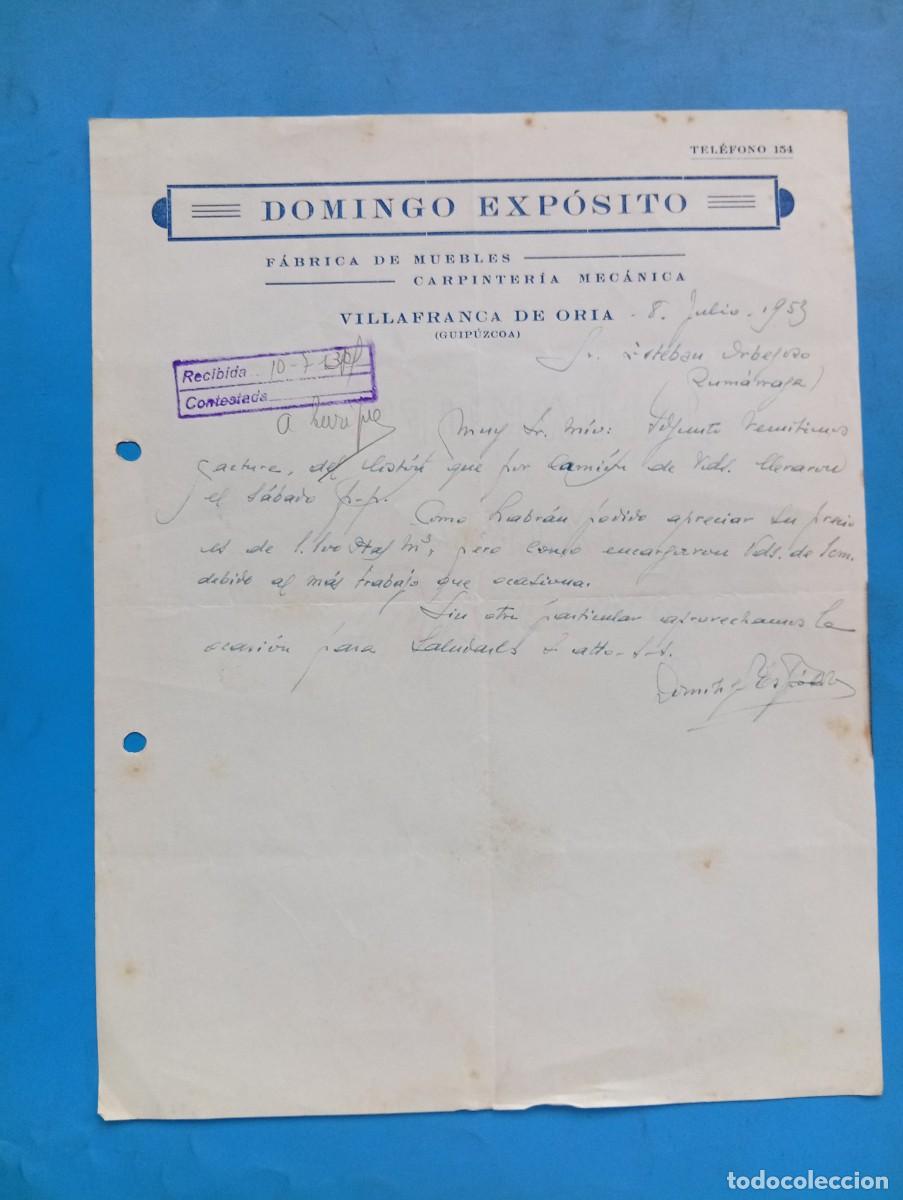 TELÉFONO 154
DOMINGO EXPÓSITO
FÁBRICA DE MUEBLES
CARPINTERÍA MECÁNICA
VILLAFRANCA DE ORIA - 8. Julio - 1953
(GUIPÚZCOA)
Sr. Esteban Orbegozo
(Zumárraga)
Recibida 10-7-53
Contestada
a
Muy Sr. Mío: Adjunto remitimos
factura, del listón que por camión de Vds. llevaron
el Sábado p.p.
Como habrán podido apreciar su precio
es de Ptas M³, pero como encargaron Vds. de 1 cm.
debido al más trabajo que ocasiona.
Sin otro particular aprovechamos la
ocasión para saludarles s. atto. s.s.
Domingo Expósito
todocoleccion